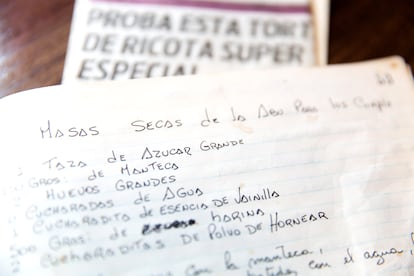 PROBA ESTA TORT
DE RICOTA SUPER
ESPECIAL
MASAS SECAS de la ABU PARA los Cumples
1 TAZA de AZUCAR GRANDE
GRS: de MANTECA
HUEVOS GRANDES
CUCHARADAS de AGUA
CUCHARADITA de ESENCIA DE VAINILLA
GRS: de HARINA
2 CUCHARADITAS DE POLVO DE HORNEAR
con la manteca,
con el agua,